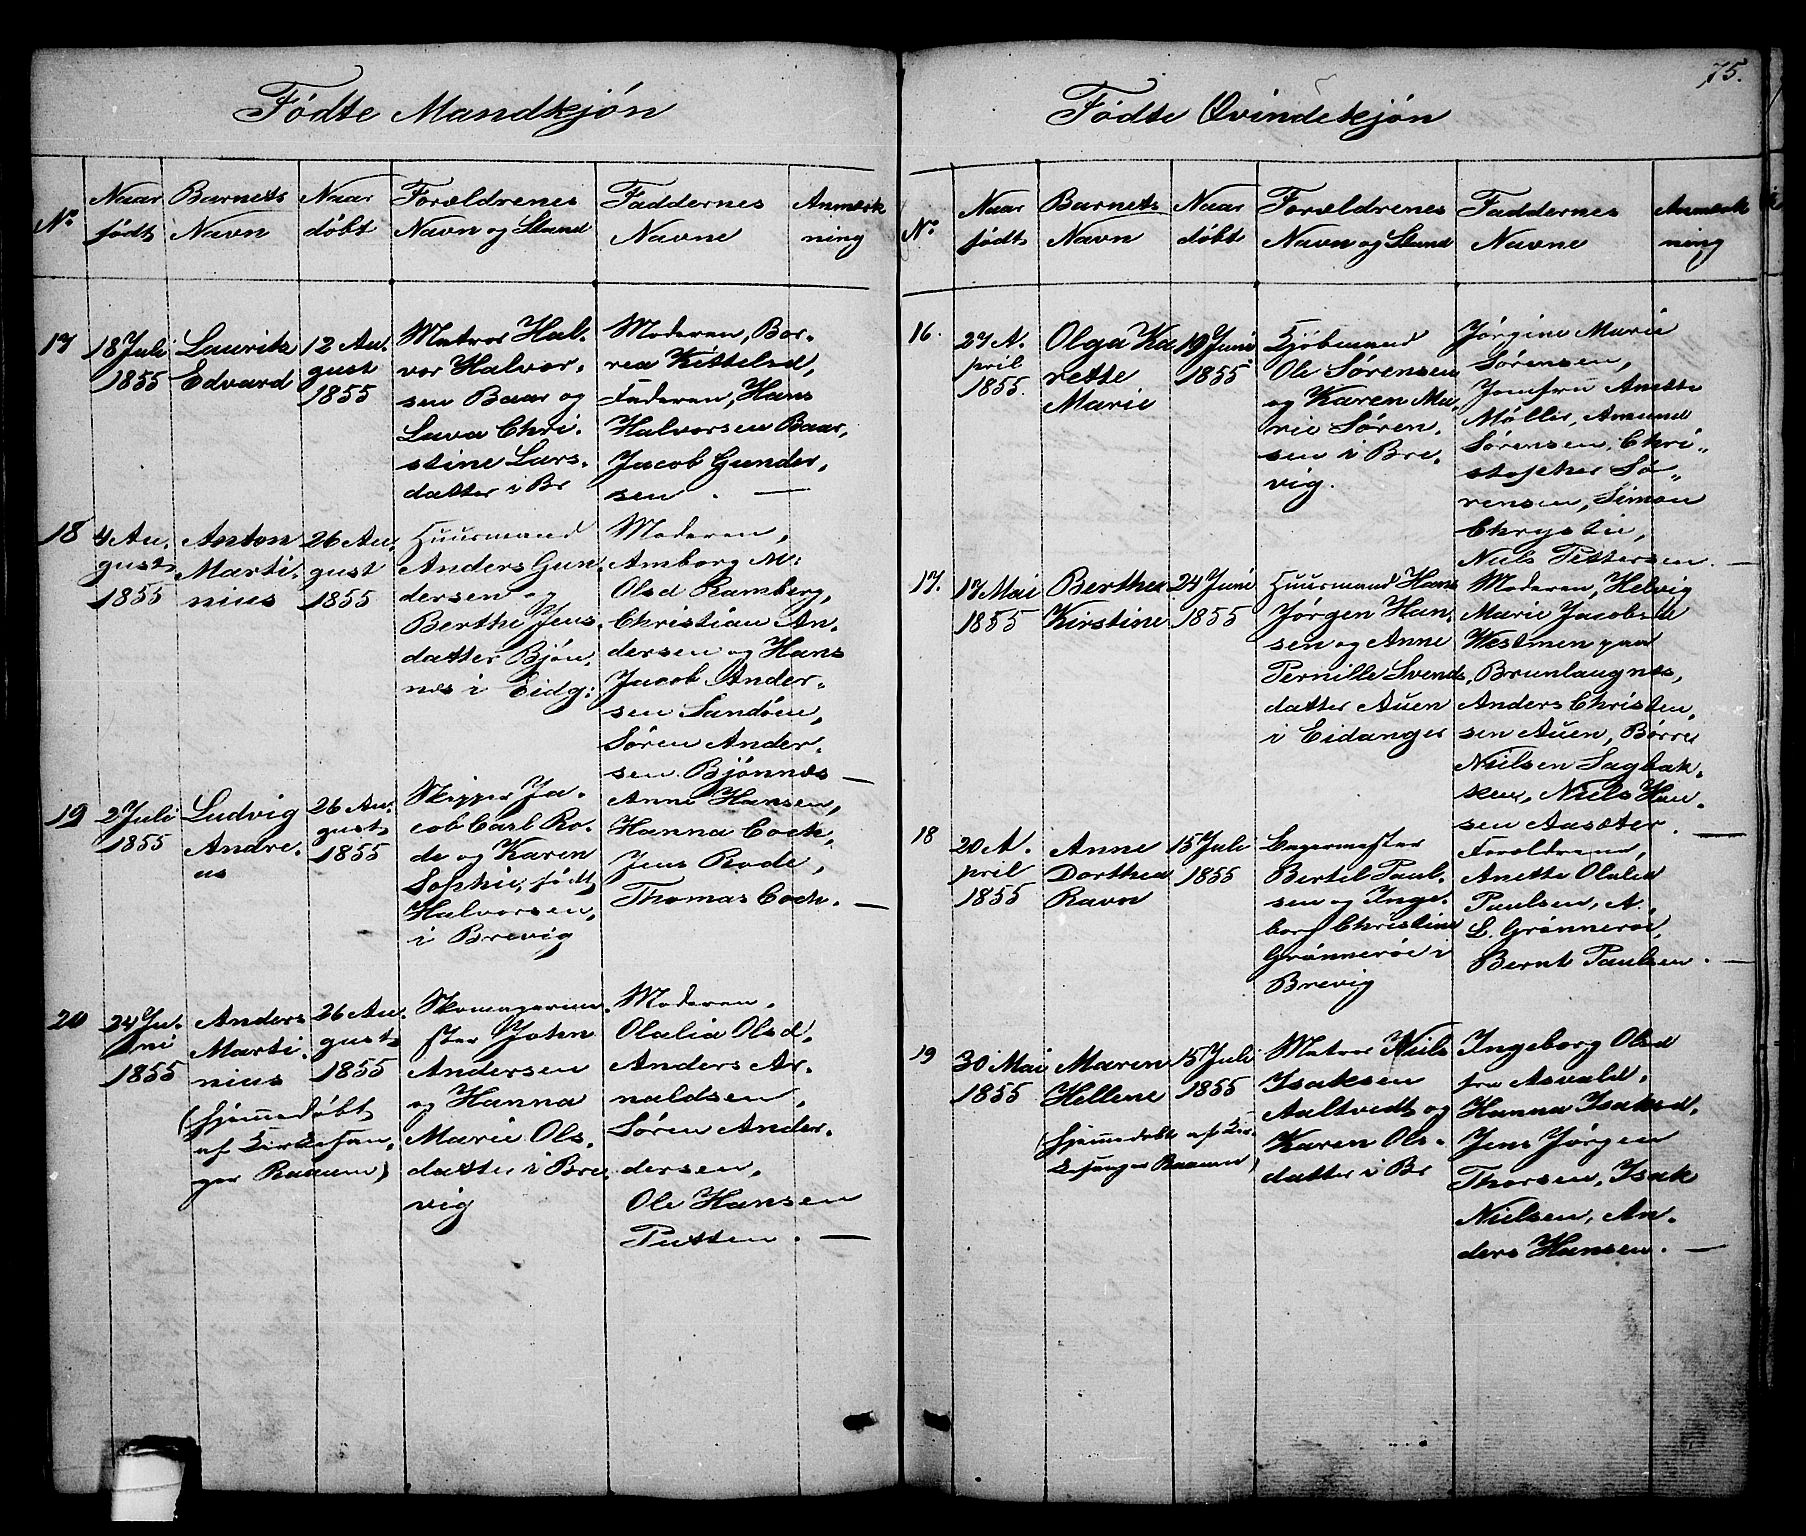 Fødte Mandkjøn
No
Naar født
Barnets Navn
Naar døbt
Forældrenes Navn og Stand
Faddernes Navne
Anmærkning
17
18 Juli
1855
Lauritz
Edvard
12 Au,
gust
1855
Matros Hal,
vor Halvor,
sen Baar og
Lava Chri,
stine Lars,
datter i Br
Moderen, Bor,
rea Kittelsd,
Faderen, Hans
Halvorsen Baar,
Jacob Gunder,
sen . —
18
4 Au,
gust
1855
Anton
Marti,
nius
26 Au,
gust
1855
Huusmand
Anders Gun
dersen og
Berthe Jens,
datter Bjøn,
næs i Eidg:
Moderen,
Amborg M:
Olsd Ramberg,
Christian An,
dersen og Hans
Jacob Ander,
sen Sandøen,
Søren Ander,
sen Bjønnæs —
19
2 Juli
1855
Ludvig
Andre,
us
26 Au,
gust
1855
Skipper Ja,
cob Carl Ro,
de og Karen
Sophie, født
Halvorsen,
i Brevig
Anne Hansen,
Hanna Coch,
Jens Rode,
Thomas Coch. —
20
24 Ju,
ni
1855
Anders
Marti,
nius
(hjemmedøbt
af Kirkesan,
ger Raaum)
26 Au,
gust
1855
Skomagerme
ster John
Andersen
og Hanna
Marie Ols,
datter i Bre,
vig
Moderen,
Olalia Olsd,
Anders Ar,
naldsen,
Søren Ander,
dersen,
Ole Hansen
Putten . —
75.
Fødte Qvindekjøn
No
Naar født
Barnets Navn
Naar døbt
Forældrenes Navn og Stand
Faddernes Navne
Anmærkning
16.
27 A,
pril
1855.
Olga Ka
rette
Marie
19 Juni
1855
Kjøbmand
Ole Sørensen
og Karen Ma,
rie Søren,
sen i Bre,
vig.
Jørgine Marie
Sørensen,
Jomfru Anette
Møller, Amund
Sørensen, Chri,
stopher Sø,
rensen, Simon
Chrystie,
Niels Pettersen. —
17.
17 Mai
1855
Berthea
Kirstine
24 Juni
1855
Huusmand Hans
Jørgen Han,
sen og Anne
Pernille Svends,
datter Auen
i Eidanger
Moderen, Helvig
Marie Jacobsen
Westmen paa
Brunlaugnæs,
Anders Christen,
sen Auen, Børre
Nielsen Sagbak,
ken, Niels Han,
sen Aasæter. —
18
20 A,
pril
1855
Anne
Dorthea
Ravn
15 Juli
1855
Bagermester
Bertil Paul,
sen og Inge,
borg Christine
Grønnerøe i
Brevig
Forældrene,
Anette Olalea
Paulsen, A,
L. Grønnerøe,
Bernt Paulsen. —
19
30 Mai
1855
Maren
Hellene
(hjemmedøbt af Kir,
kesanger Raaum)
15 Juli
1855
Matros Niels
Isaksen
Aaltvedt og
Karen Ols,
datter i Br
Ingeborg Olsd
fra Asvald,
Hanna Isaksd,
Jens Jørgen
Thorsen, Isak
Nielsen, An,
ders Hansen. —